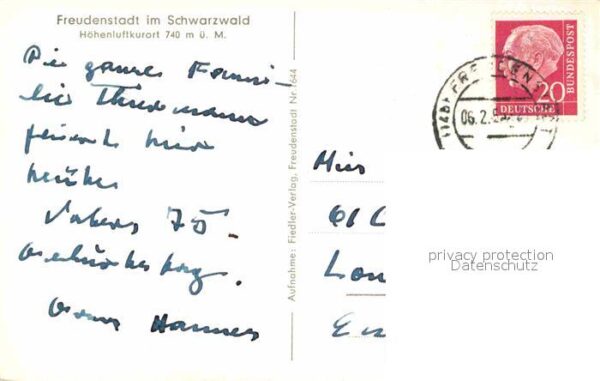 Freudenstadt im Schwarzwald
Höhenluftkurort 740 m ü. M.
Die ganze Fami-
lie
feiert hier
Vaters 75-
Geburtstag.
Hannes
Aufnahme: Fiedler-Verlag, Freudenstadt Nr. 1644
20
DEUTSCHE
BUNDESPOST
06.2.
Miss
61 C
Lon
En
privacy protection
Datenschutz